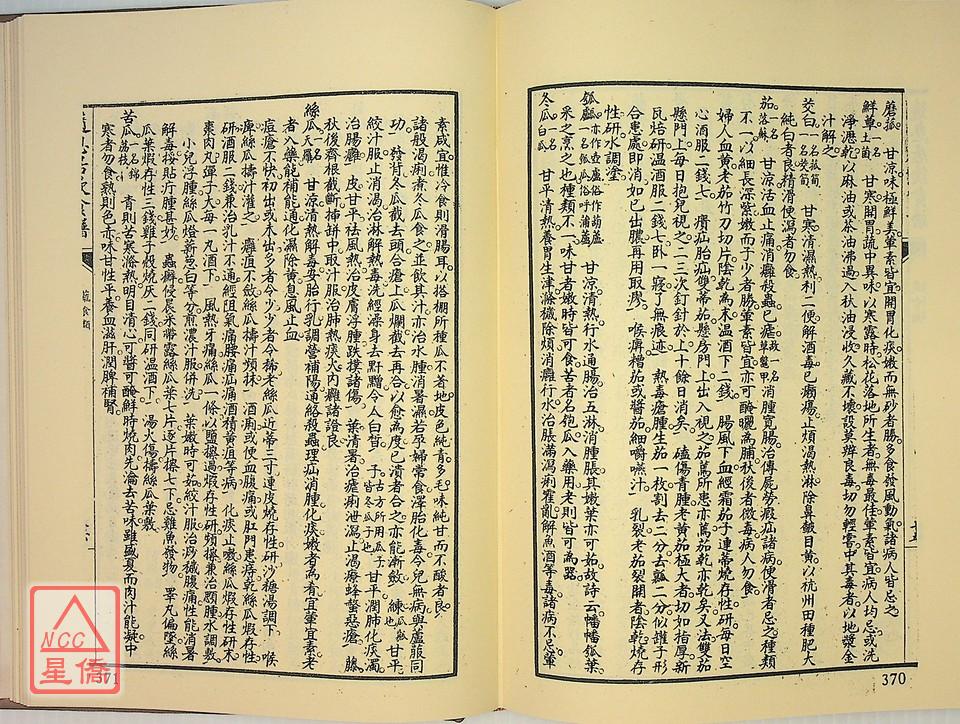 蘑菰 甘涼味極鮮美葷素皆宜開胃化痰嫩而無砂者勝多食發風動氣諸病人皆忌之
鮮草一名土菌 甘寒開胃蔬中異味以寒露時松花落地所生者無毒最佳葷素皆宜病人均忌或洗
淨瀝乾以麻油或茶油沸過入秋油浸收久藏不壞設莫辨良毒切勿輕嘗中其毒者以地漿金
汁解之
茭白一名菰筍一名茭筍 甘寒清濕熱利二便解酒毒已癩瘍止煩渴熱淋除鼻皶目黃以杭州田種肥大
純白者良精滑便瀉者勿食
茄一名落蘇 甘涼活血止痛消癰殺蟲已瘧 消腫寬腸治傳屍勞瘕疝諸病便滑者忌之種類
不一以細長深紫嫩而子少者勝葷素皆宜亦可醃曬為脯秋後者微毒病人勿食
婦人血黃老茄竹刀切片陰乾為末溫酒下二錢 腸風下血經霜茄子連蒂燒存性研每日空
心酒服二錢七 㿉疝胎疝雙蒂茄懸房門上出入視之茄蔫所患亦蔫茄乾亦乾矣又法雙茄
懸門上每日抱兒視之二三次釘針於上十餘日消矣 磕傷青腫老黃茄極大者切如指厚新
瓦焙研溫酒服二錢七臥一寢了無痕迹 熱毒瘡腫生茄一枚割去二分去瓤二分似礶子形
合患處即消如已出膿再用取瘳 喉痹糟茄或醬茄細嚼嚥汁 乳裂老茄裂開者陰乾燒存
性研水調塗
瓠瓢 甘涼清熱行水通腸治五淋消腫脹其嫩葉亦可茹故詩云幡幡瓠葉
采之烹之也種類不一味甘者嫩時皆可食苦者名匏瓜入藥用老則皆可為器
冬瓜一名白瓜 甘平清熱養胃生津滌穢除煩消癰行水治脹滿瀉痢霍亂解魚酒等毒諸病不忌葷
370
素咸宜惟冷食則滑腸耳以搭棚所種瓜不着地皮色純青多毛味純甘而不酸者良
諸般渴痢煮冬瓜食之並飲其汁亦治水腫消暑濕若孕婦常食澤胎化毒令兒無病與蘆菔同
功 發背冬瓜截去頭合瘡上瓜爛截去再合以愈為度已潰者合之亦能漸斂 練 甘平
絞汁服止消渴治淋解熱毒洗經澡身去䵟䵳令人白皙 子 甘平潤肺化痰濁
治腸癰 皮甘平袪風熱治皮膚浮腫跌撲諸傷 葉清暑治瘧痢泄瀉止渴療蜂螫惡瘡 藤
秋後齊根截斷插餠中取汁服治肺熱痰火內癰諸證良
絲瓜一名天羅 甘涼清熱解毒安胎行乳調營補陽通絡殺蟲理疝消腫化痰嫩者為肴宜葷宜素老
者入藥能補能通化濕除黃息風止血
痘瘡不快初出或未出多者令少少者令稀老絲瓜近蒂三寸連皮燒存性研沙糖湯調下 喉
痺絲瓜擣汁灌之 癰疽不斂絲瓜擣汁頻抹 酒痢或便血腹痛或肛門患痔乾絲瓜煅存性
研酒服二錢兼治乳汁不通經阻氣痛腰痛疝痛酒積黃疸等病 化痰止嗽絲瓜煅存性研末
棗肉丸彈子大每一丸酒下 風熱牙痛絲瓜一條以鹽擦過煅存性研頻擦兼治顋腫水調敷
小兒浮腫絲瓜燈薪葱白等分煎濃汁服併洗 葉嫩時可茹絞汁服治痧穢腹痛性能消暑
解毒挼貼疔腫甚妙 蟲癬侵晨采帶露絲瓜葉七片逐片擦七下忌雞魚發物 睪丸偏墜絲
瓜葉煅存性三錢雞子殼燒灰二錢同研溫酒下 湯火傷擣絲瓜葉敷
苦瓜一名錦荔枝 青則苦寒滌熱明目清心可醬可醃鮮時燒肉先瀹去苦味雖盛夏而肉汁能凝中
寒者勿食熟則色赤味甘性平養血滋肝潤脾補腎
蔬食類
371
NCC
星僑